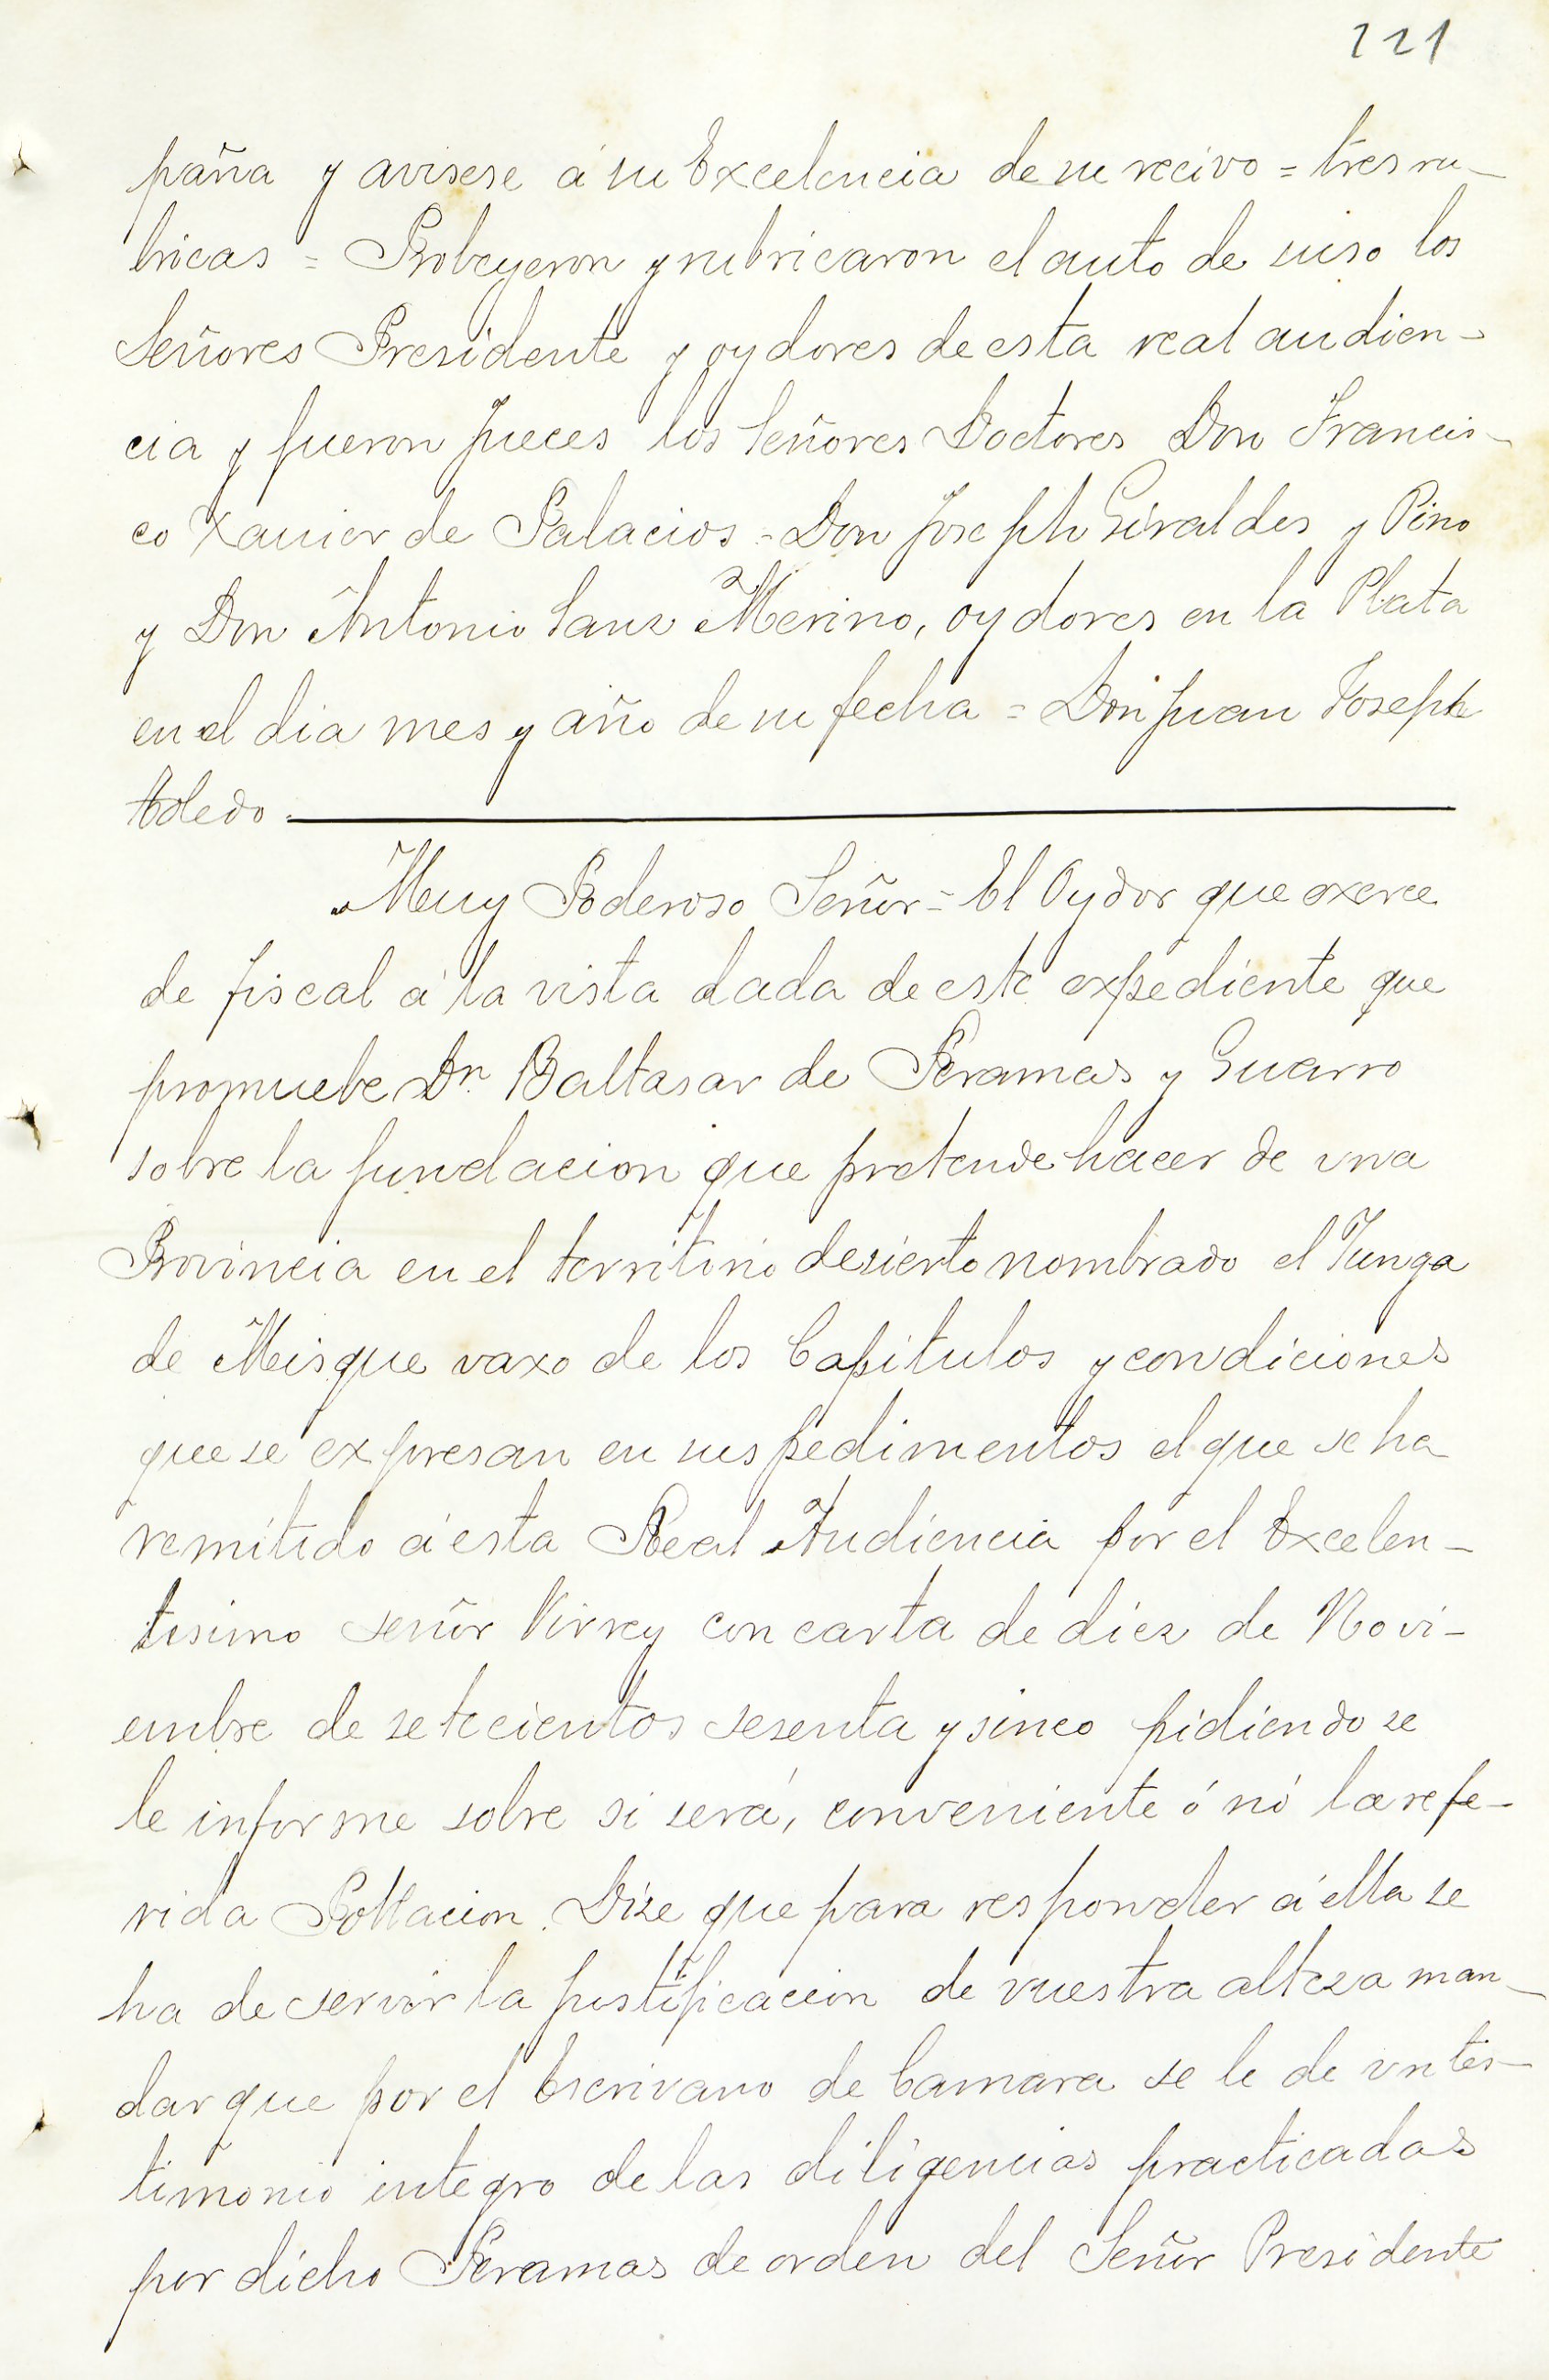 221
paña y avisese á su Excelencia de su recivo = tres ru-
bricas = Probeyeron y rubricaron el auto de suso los
Señores Presidente y oydores de esta real audien-
cia y fueron Jueces los Señores Doctores Don Francis-
co Xauier de Palacios = Don Joseph Giraldes y Pino
y Don Antonio Sanz Merino, oydores en la Plata
en el dia mes y año de su fecha = Don Juan Joseph
toledo
Muy Poderoso Señor = El Oydor que exerce
de fiscal á la vista dada de este expediente que
promuebe Dn. Baltasar de Peramas y Guarro
sobre la fundacion que pretende hacer de vna
Provincia en el territorio desierto nombrado el Yunga
de Misque vaxo de los Capitulos y condiciones
que se expresan en sus pedimentos el que se ha
remitido á esta Real Audiencia por el Excelen-
tisimo señor Virrey con carta de diez de Novi-
embre de setecientos sesenta y sinco pidiendo se
le informe sobre si será, conveniente ó nó la refe-
rida Poblacion. Dize que para responder á ella se
ha de servir la justificacion de vuestra alteza man-
dar que por el Escrivano de Camara se le de vn tes-
timonio integro de las diligencias practicadas
por dicho Peramas de orden del Señor Presidente